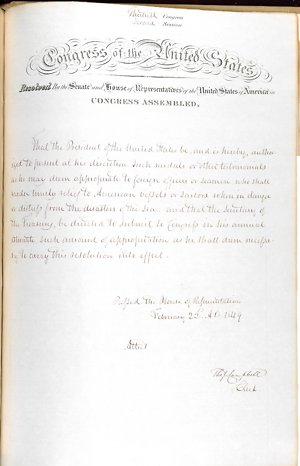 Thirtieth Congress
Second Session
Congress of the United States
Resolved By the Senate and House of Representatives of the United States of America in
CONGRESS ASSEMBLED,
That the President of the United States be, and is hereby, author
ized to present at his discretion such medals or other testimonials
as he may deem appropriate to foreign officers or seamen who shall
render timely relief to American vessels or sailors when in danger
or distress from the disasters of the sea: and that the Secretary of
the Treasury, be directed to submit to Congress in his annual
estimate such amount of appropriation as he shall deem necessa
ry to carry this resolution into effect.
Passed the House of Representatives
February 1849
Attest
Campbell
Clerk